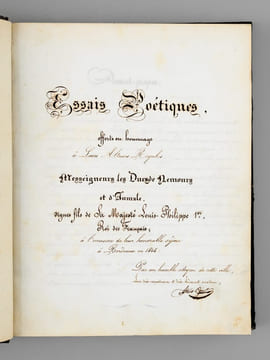 Essais Poétiques,
offerts en hommage
à Leurs Altesses Royales
Messeigneurs les Ducs de Nemours
et d'Aumale,
dignes fils de Sa Majesté Louis-Philippe 1er,
Roi des Français;
à l'occasion de leur honorable séjour
à Bordeaux en
Par un humble citoyen de cette ville,